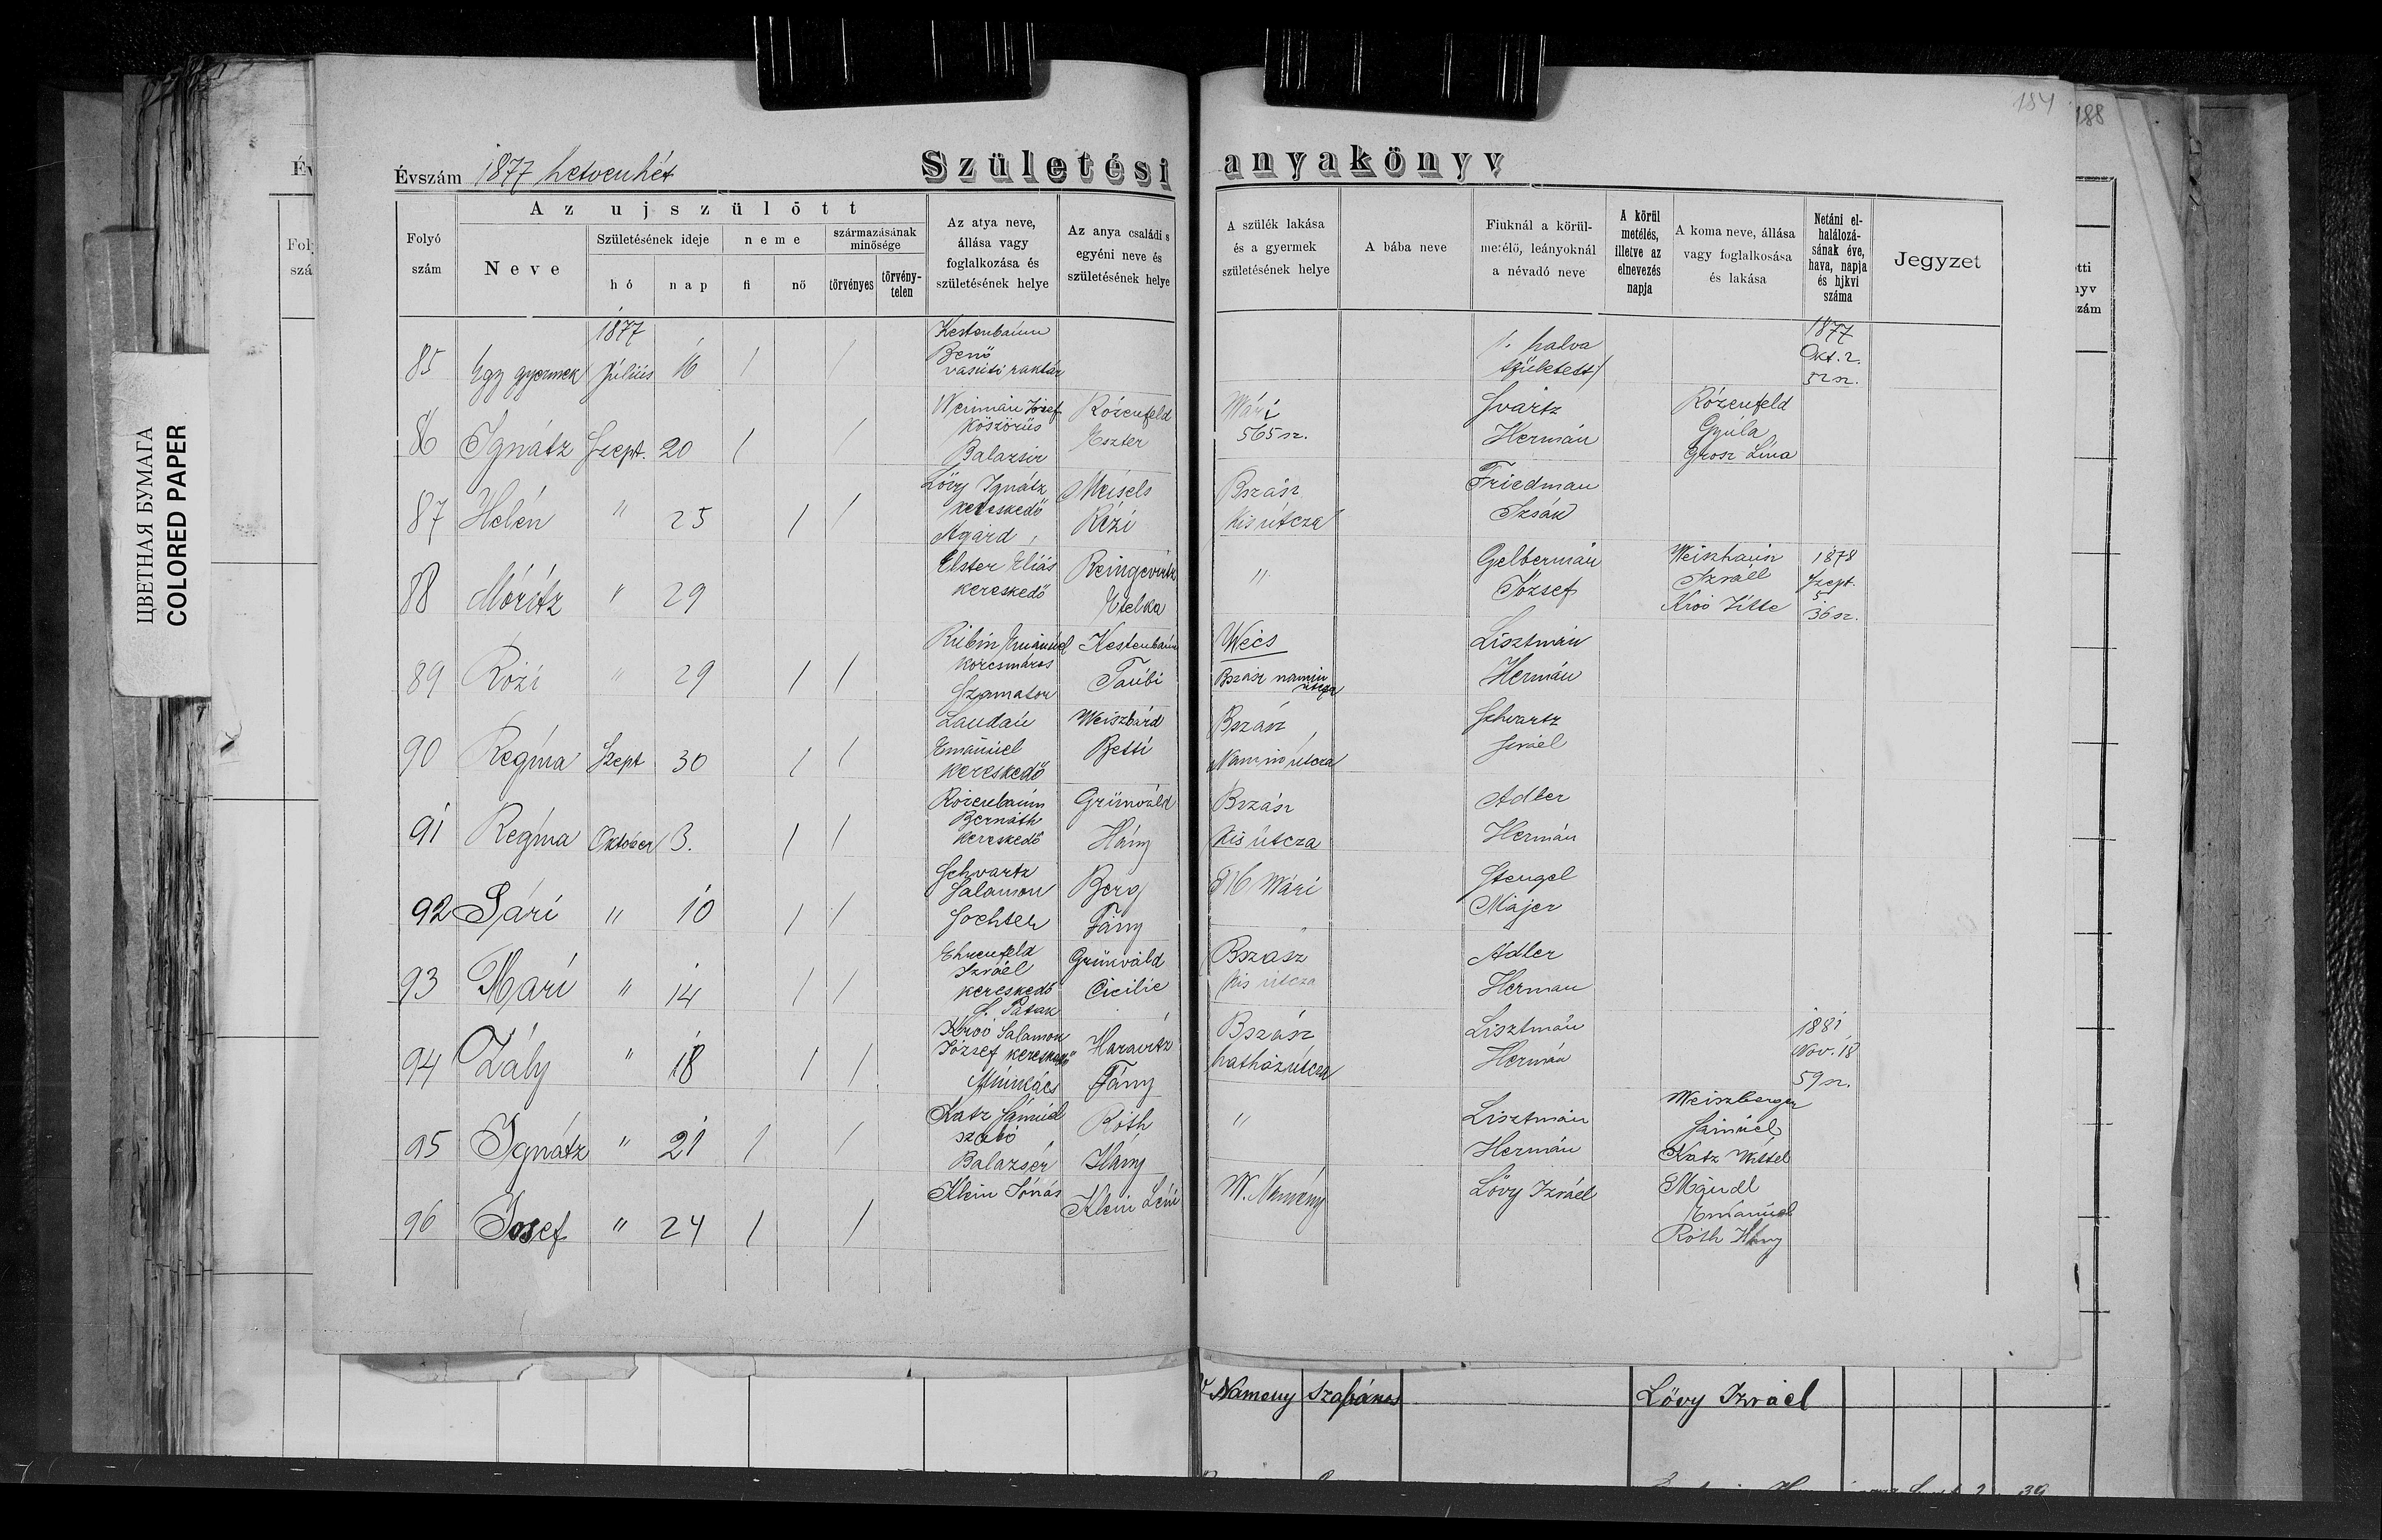 184
188
Évszám 1877 hetvenhét
Születési anyakönyv
Folyó szám
Az ujszülött
Neve
Születésének ideje
hó
nap
neme
fi
nő
származásának minősége
törvényes
törvény-telen
Az atya neve, állása vagy foglalkozása és születésének helye
Az anya családi s egyéni neve és születésének helye
A szülék lakása és a gyermek születésének helye
A bába neve
Fiuknál a körül-metélő, leányoknál a névadó neve
A körül metélés, illetve az elnevezés napja
A koma neve, állása vagy foglalkosása és lakása
Netáni el-halálozá-sának éve, hava, napja és hjkvi száma
Jegyzet
85 Egy gyermek 1877 Július 16 / / Kestenbaum Benő vasúti raktár /: halva született/ 1877 Okt. 2. 52 sz.
86 Ignátz Szept. 20 / / Weimán József köszörüs Balazsér Rózenfeld Eszter Wári 565 sz. Svartz Hermán Rózenfeld Gyula Grosz Lina
87 Helén " 25 / / Lövy Ignátz kereskedő Agárd Meisels Rézi Bszász Kis útcza Friedman Izsák
88 Móritz " 29 Elster Eliás kereskedő Reingevirtz Etelka " Gelbermán József Weiszhaus Izráel Kroó Zitte 1878 Szept. 5 36 sz.
89 Rózi " 29 / / Rubin Emánúel korcsmáros Szamator Kestenbaum Taubi Wécs Bszász namin útcza Lisztmán Hermán
90 Regina Szept 30 / / Landau Emánúel kereskedő Weiszbárd Betti Bszász Naminó útcza Schvartz Izráel
91 Regina Október 3. / / Rózenbaum Bernáth kereskedő Grünváld Hány Bszász Kis útcza Adler Hermán
92 Sári " 10 / / Schvartz Salamon Sochter Berg Fány 816 Wári Stengel Májer
93 Mari " 14 / / Ehrenfeld Izráel kereskedő S. Patak Grünváld Cicilie Bszász Kis útcza Adler Herman
94 Zály " 18 / / Kroó Salamon József kereskedő Munkács Haravitz Fány Bszász hatház útcza Lisztmán Hermán 1881 Nov. 18 59 sz.
95 Ignátz " 21 / / Katz Sámuel szabó Balazsér Róth Hány " Lisztmán Hermán Weiszberger Sámúel Katz Vittel
96 Josef " 24 / / Klein Jónás Klein Léni W. Namény Lövy Izráel Mándl Emánúel Róth Hány
V Nameny
Lövy Izráel
39
ЦВЕТНАЯ БУМАГА
COLORED PAPER